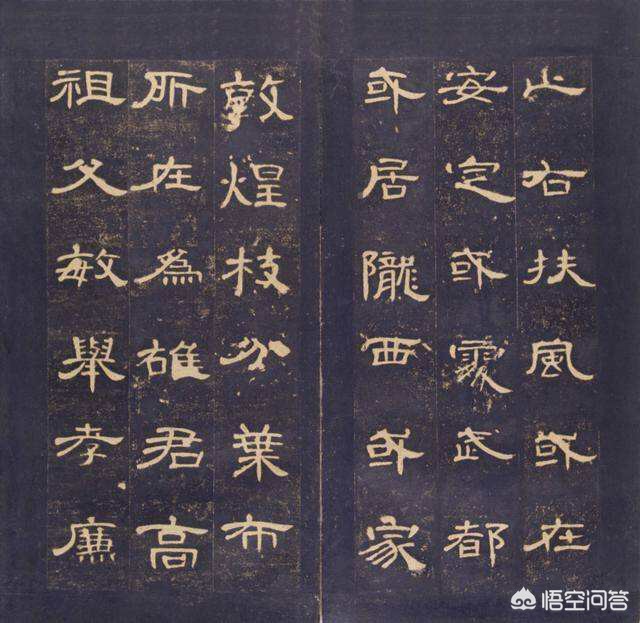 止右扶風或在
安定或處武都
或居隴西或家
敦煌枝分葉布
所在為雄君高
祖父敏舉孝廉
悟空问答